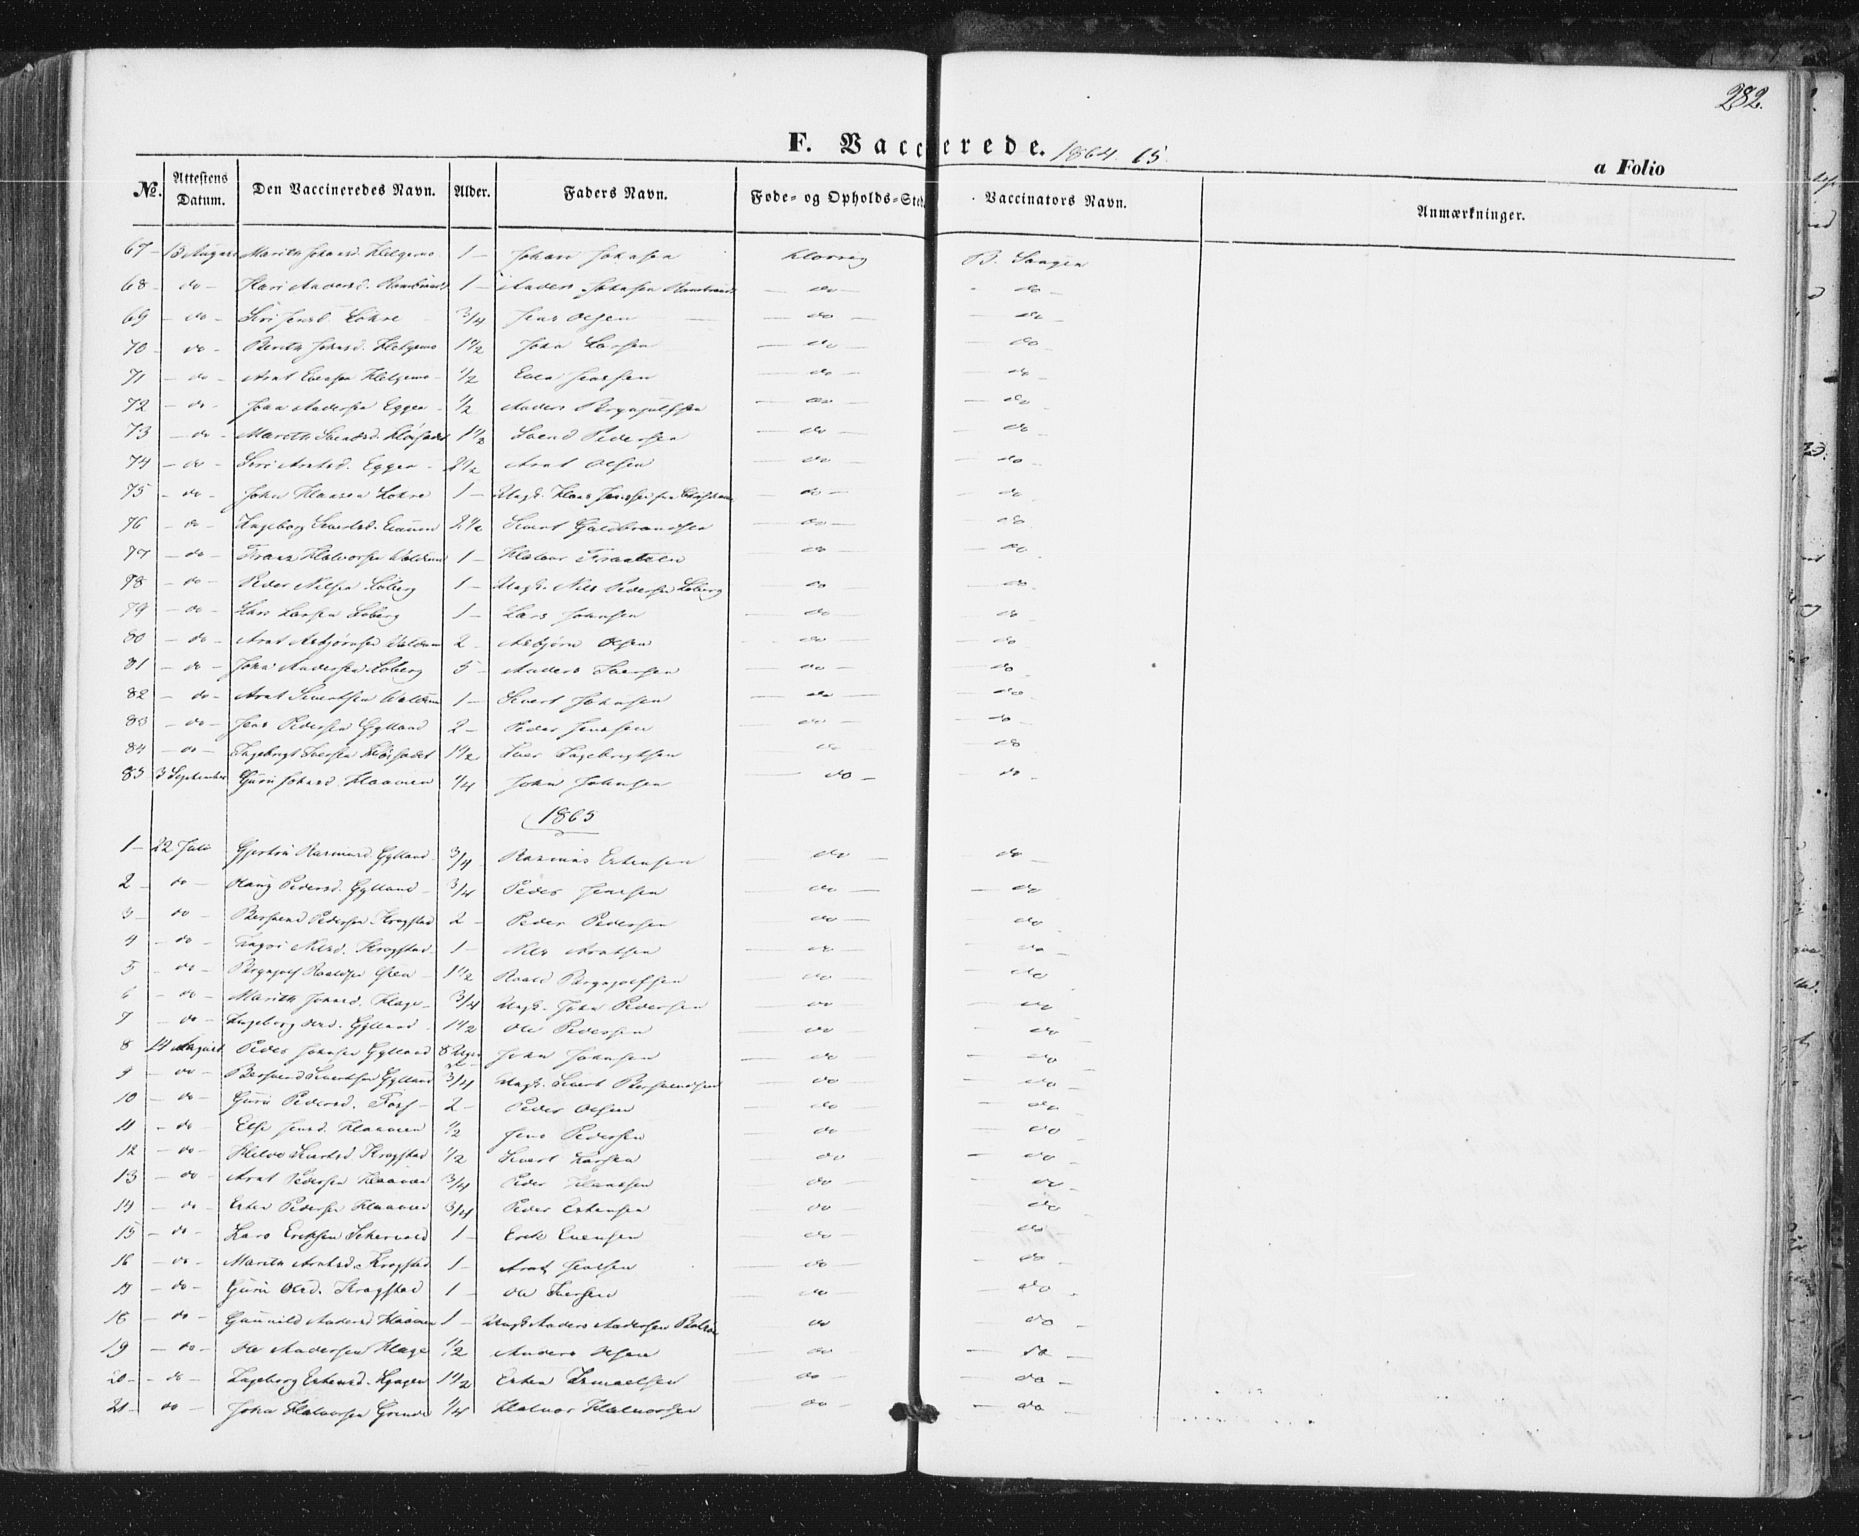 282.
F. Vaccinerede. 1864. 65.
a Folio
No. Attestens Datum. Den Vaccineredes Navn. Alder. Faders Navn. Føde- og Opholds-Sted. Vaccinators Navn. Anmærkninger.
67 - 13 August Marith Johnsd. Helgemo 1 - Johan Johnsen
68 - do - Kari Andersd. 1 - Anders Johnsen - do - - do -
69 - do - Siri Jensd. Løhre 3/4 Jens Olsen - do - - do -
70 - do - Berith Johnsd. Helgemo 1 1/2 John Larsen - do - - do -
71 - do - Arnt Evensen Helgemo 1/2 Even Jenssen - do - - do -
72 - do - John Andersen Eggen 1/2 Anders Brynjulfsen - do - - do -
73 - do - Marith Svendsd. 1 1/2 Svend Pedersen - do - - do -
74 - do - Siri Arntsd. Eggen 2 1/2 Arnt Olsen - do - - do -
75 - do - John Klausen Løhre 1 - Ungk. - do - - do -
76 - do - Ingeborg Sivertsd. 2 1/2 Sivert Guldbrandsen - do - - do -
77 - do - Halvorsen 1 - Halvor - do - - do -
78 - do - Peder Nilsen Løberg 1 - Ungk. Nils Pedersen Løberg - do - - do -
79 - do - Lars Larsen Løberg 1 - Lars Johnsen - do - - do -
80 - do - Arnt Asbjørnsen 2 - Asbjørn Olsen - do - - do -
81 - do - John Andersen Løberg 5 - Anders Iversen - do - - do -
82 - do - Arnt Sivertsen 1 - Sivert Johnsen - do - - do -
83 - do - Jens Pedersen Gylland 2 - Peder Jenssen - do - - do -
84 - do - Ingebrigt Iversen 1 1/2 Iver Ingebrigtsen - do - - do -
85 3 September Guru Johnsd. Haaven 1/4 John Johnsen - do - - do -
1865
1 - 22 Juli Gjertru Rasmusd. Gylland 3/4 Rasmus Estensen - do - - do -
2 - do - Pedersd. Gylland 3/4 Peder Jenssen - do - - do -
3 - do - Bersvend Pedersen Krogstad 2 - Peder Pedersen - do - - do -
4 - do - Nilsd. Krogstad 1 - Nils Arntsen - do - - do -
5 - do - Brynjulf Roaldsen 1 1/2 Roald Brynjulfsen - do - - do -
6 - do - Marith Johnsd. Hage 3/4 Ungk. John Pedersen - do - - do -
7 - do - Ingeborg Olsd. Gylland 1 1/2 Ole Pedersen - do - - do -
8 14 August Peder Johnsen Gylland 8 Uger John Johnsen - do - - do -
9 - do - Bersvend Sivertsen Gylland 3/4 Ungk. Sivert Bersvendsen - do - - do -
10 - do - Guru Pedersd. Fos - 2 - Peder Olsen - do - - do -
11 - do - Else Jensd. Haaven 1/2 Jens Pedersen - do - - do -
12 - do - Sivertsd. Krogstad 1/2 Sivert Larsen - do - - do -
13 - do - Arnt Pedersen Haaven 3/4 Peder - do - - do -
14 - do - Esten Pedersen Haaven 3/4 Peder Estensen - do - - do -
15 - do - Lars Eriksen 1 - Erik Evensen - do - - do -
16 - do - Marith Arntsd. Krogstad 1 - Arnt - do - - do -
17 - do - Guru Olsd. Krogstad 1 - Ole Iversen - do - - do -
18 - do - Gunnild Andersd. Haaven 1 - Ungk. Anders Andersen do - do -
19 - do - Ole Andersen Hage 1/2 Anders Olsen - do - - do -
20 - do - Ingeborg Estensd. 1 1/2 Esten Ismaelsen do - - do -
21 - do - John Halvorsen Grinde 1/4 Halvor Halvorsen do - - do -